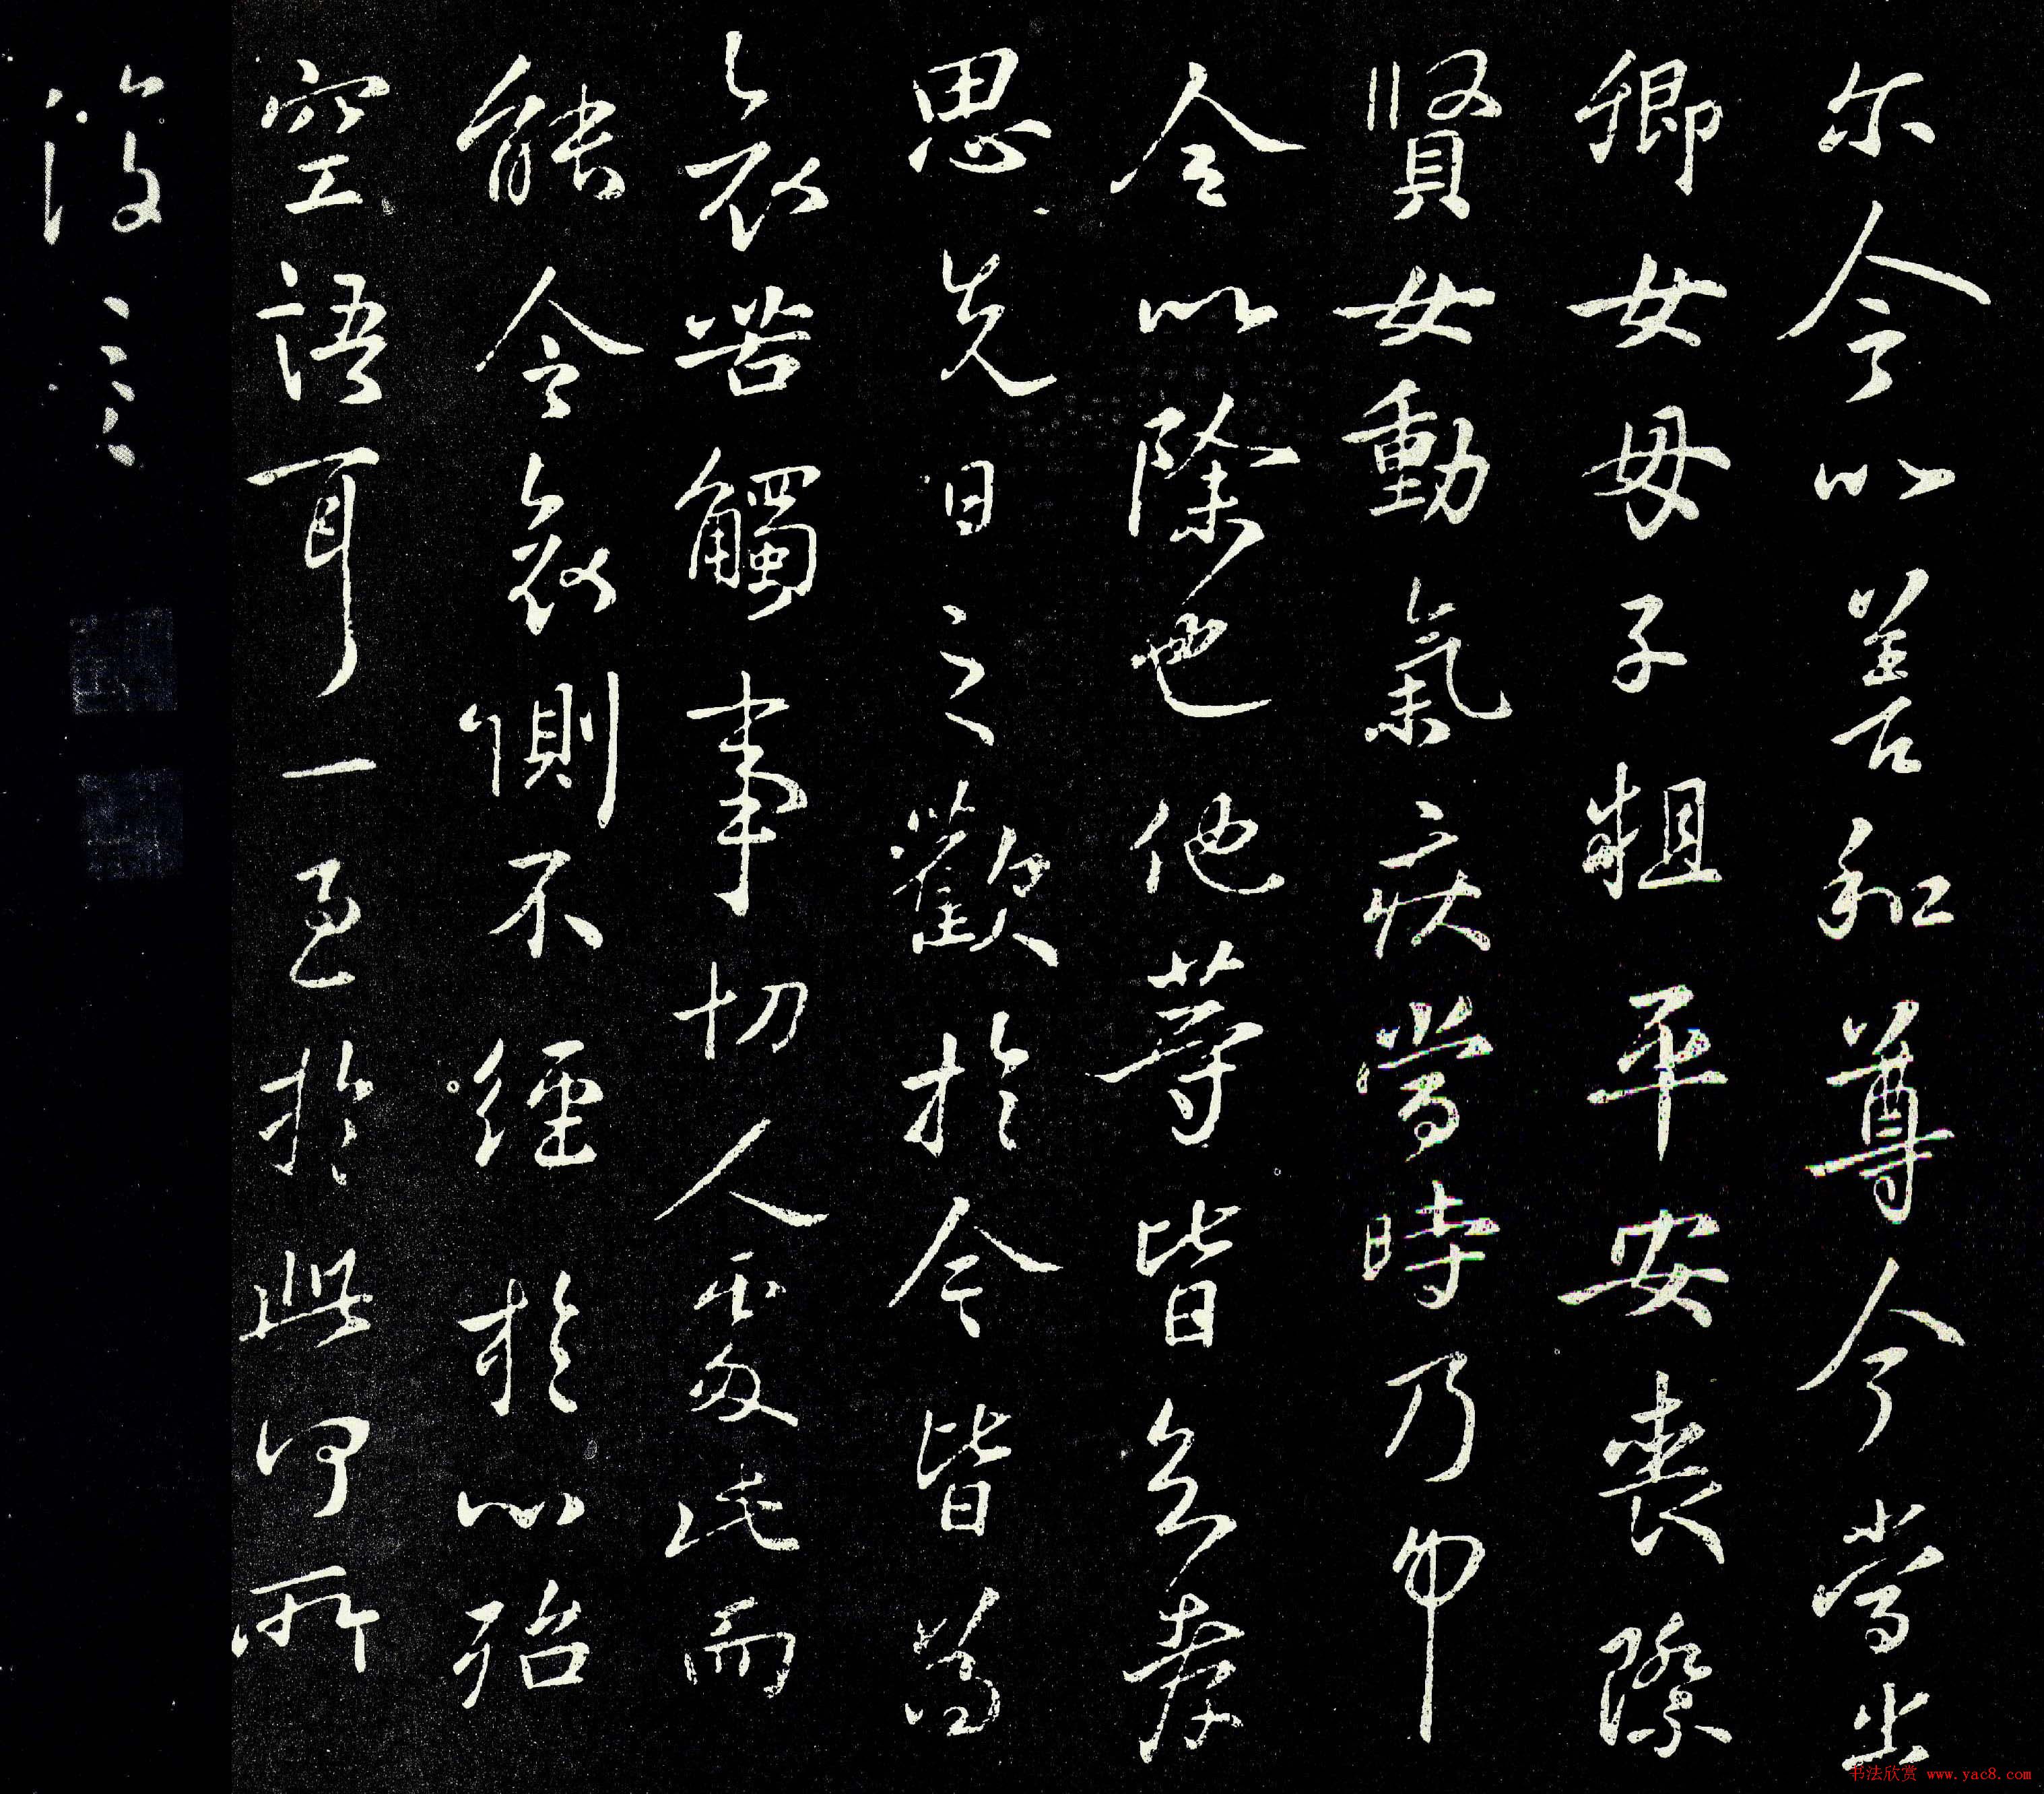 尔今以善和尊今當出
卿女母子粗平安喪際
賢女動氣疾當時乃
今以除也他等皆
思先日之歡於今皆為
哀苦觸事切人此而
能令哀惻不經於心殆
空語耳一至於此何所
復言
书法欣赏 www.yac8.com